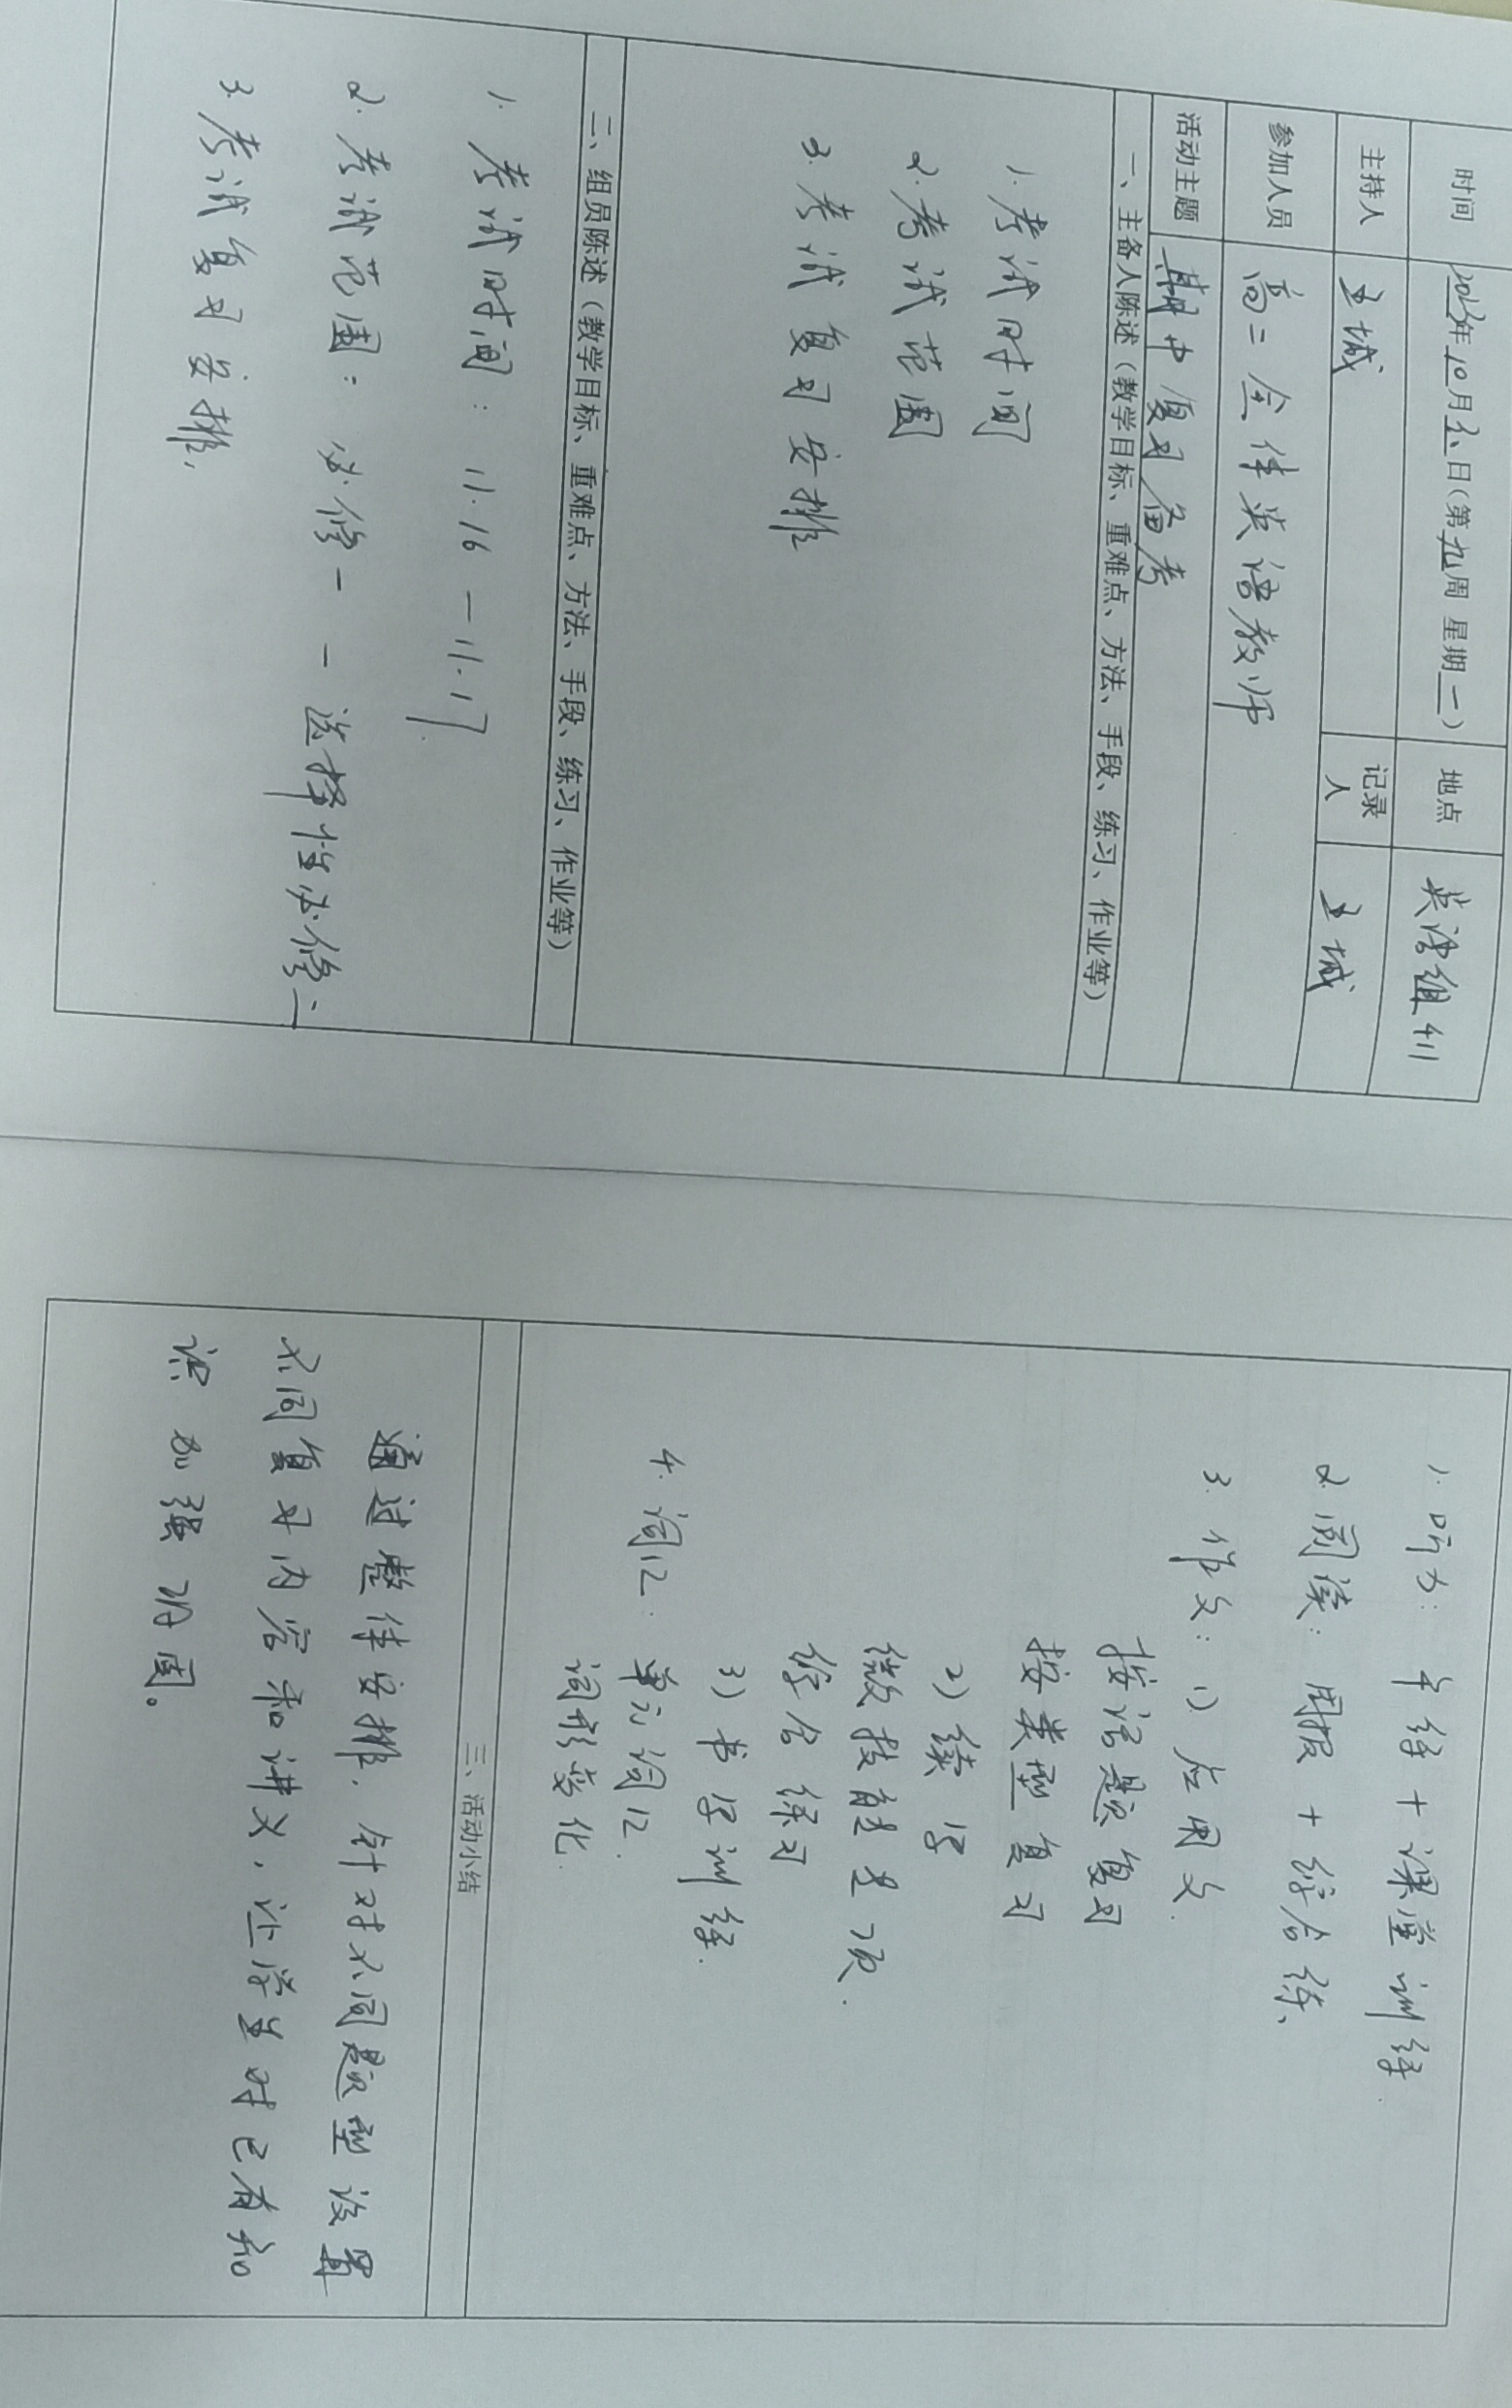 时间 2023年10月30日(第九周 星期一) 地点 英语组411
主持人 王城 记录人 王城
参加人员 高二全体英语教师
活动主题 期中复习备考
一、主备人陈述(教学目标、重难点、方法、手段、练习、作业等)
1.考试时间
2.考试范围
3.考试复习安排
二、组员陈述(教学目标、重难点、方法、手段、练习、作业等)
1. 考试时间: 11.16 — 11.17.
2. 考试范围: 必修一 - 选择性必修二
3. 考试复习安排.
1. 听力: 午练 + 课堂训练.
2. 阅读: 周报 + 综合练、
3. 作文: 1) 应用文.
按话题复习
按类型复习
2) 续写
微技能专项.
综合练习
3) 书写训练.
4. 词汇: 单元词汇.
词形变化.
三、活动小结
通过整体安排, 针对不同题型设置
不同复习内容和讲义, 让学生对已有知
识加强巩固。